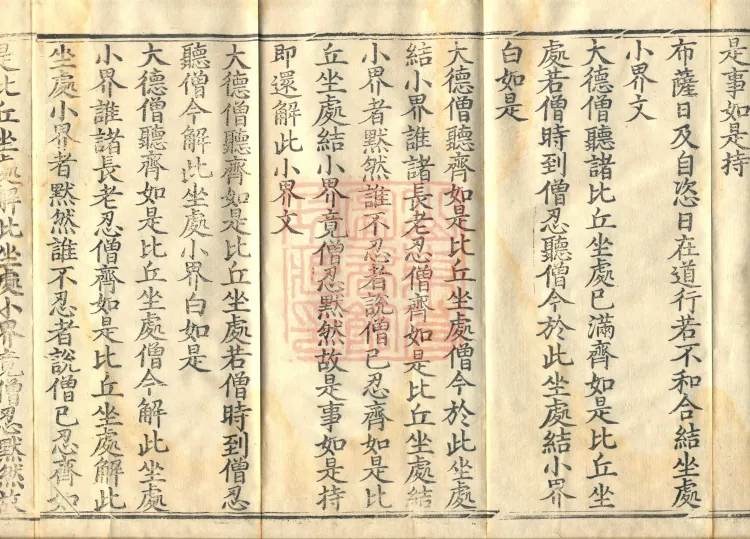 是事如是持
布薩日及自恣日在道行若不和合結坐處
小界文
大德僧聽諸比丘坐處已滿齊如是比丘坐
處若僧時到僧忍聽僧今於此坐處結小界
白如是
大德僧聽齊如是比丘坐處僧今於此坐處
結小界誰諸長老忍僧齊如是比丘坐處結
小界者默然誰不忍者說僧已忍齊如是比
丘坐處結小界竟僧忍默然故是事如是持
即還解此小界文
大德僧聽齊如是比丘坐處若僧時到僧忍
聽僧今解此坐處小界白如是
大德僧聽齊如是比丘坐處僧今解此坐處
小界誰諸長老忍僧齊如是比丘坐處解此
坐處小界者默然誰不忍者說僧已忍齊如
是比丘坐處解此坐處小界竟僧忍默然故